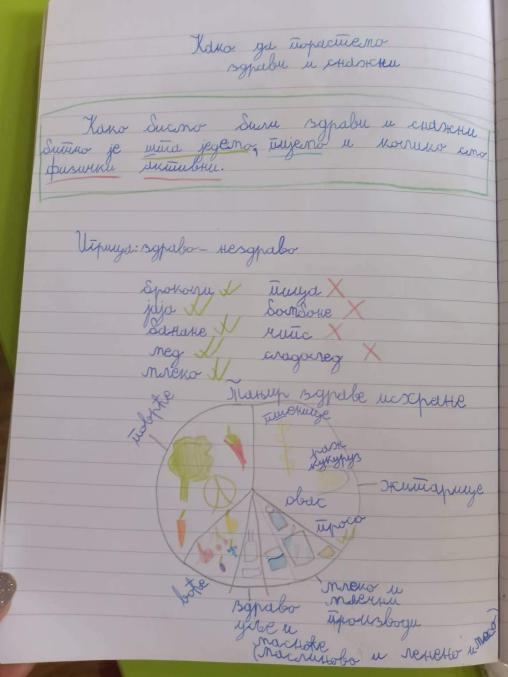 Како да порастемо
здрави и снажни
Како бисмо били здрави и снажни
битно је шта једемо, пијемо и колико смо
физички активни.
Игрица: здраво - нездраво
броколи ✓ пица ✗
јаја ✓ бомбоне ✗
банане ✓ чипс ✗
мед ✓ сладолед ✗
млеко ✓
Тањир здраве исхране
поврће
пшеница
раж
кукуруз
житарице
овас
просо
воће
млеко и
млечни
производи
здраво
уље и
масноће
(маслиново и ланено и